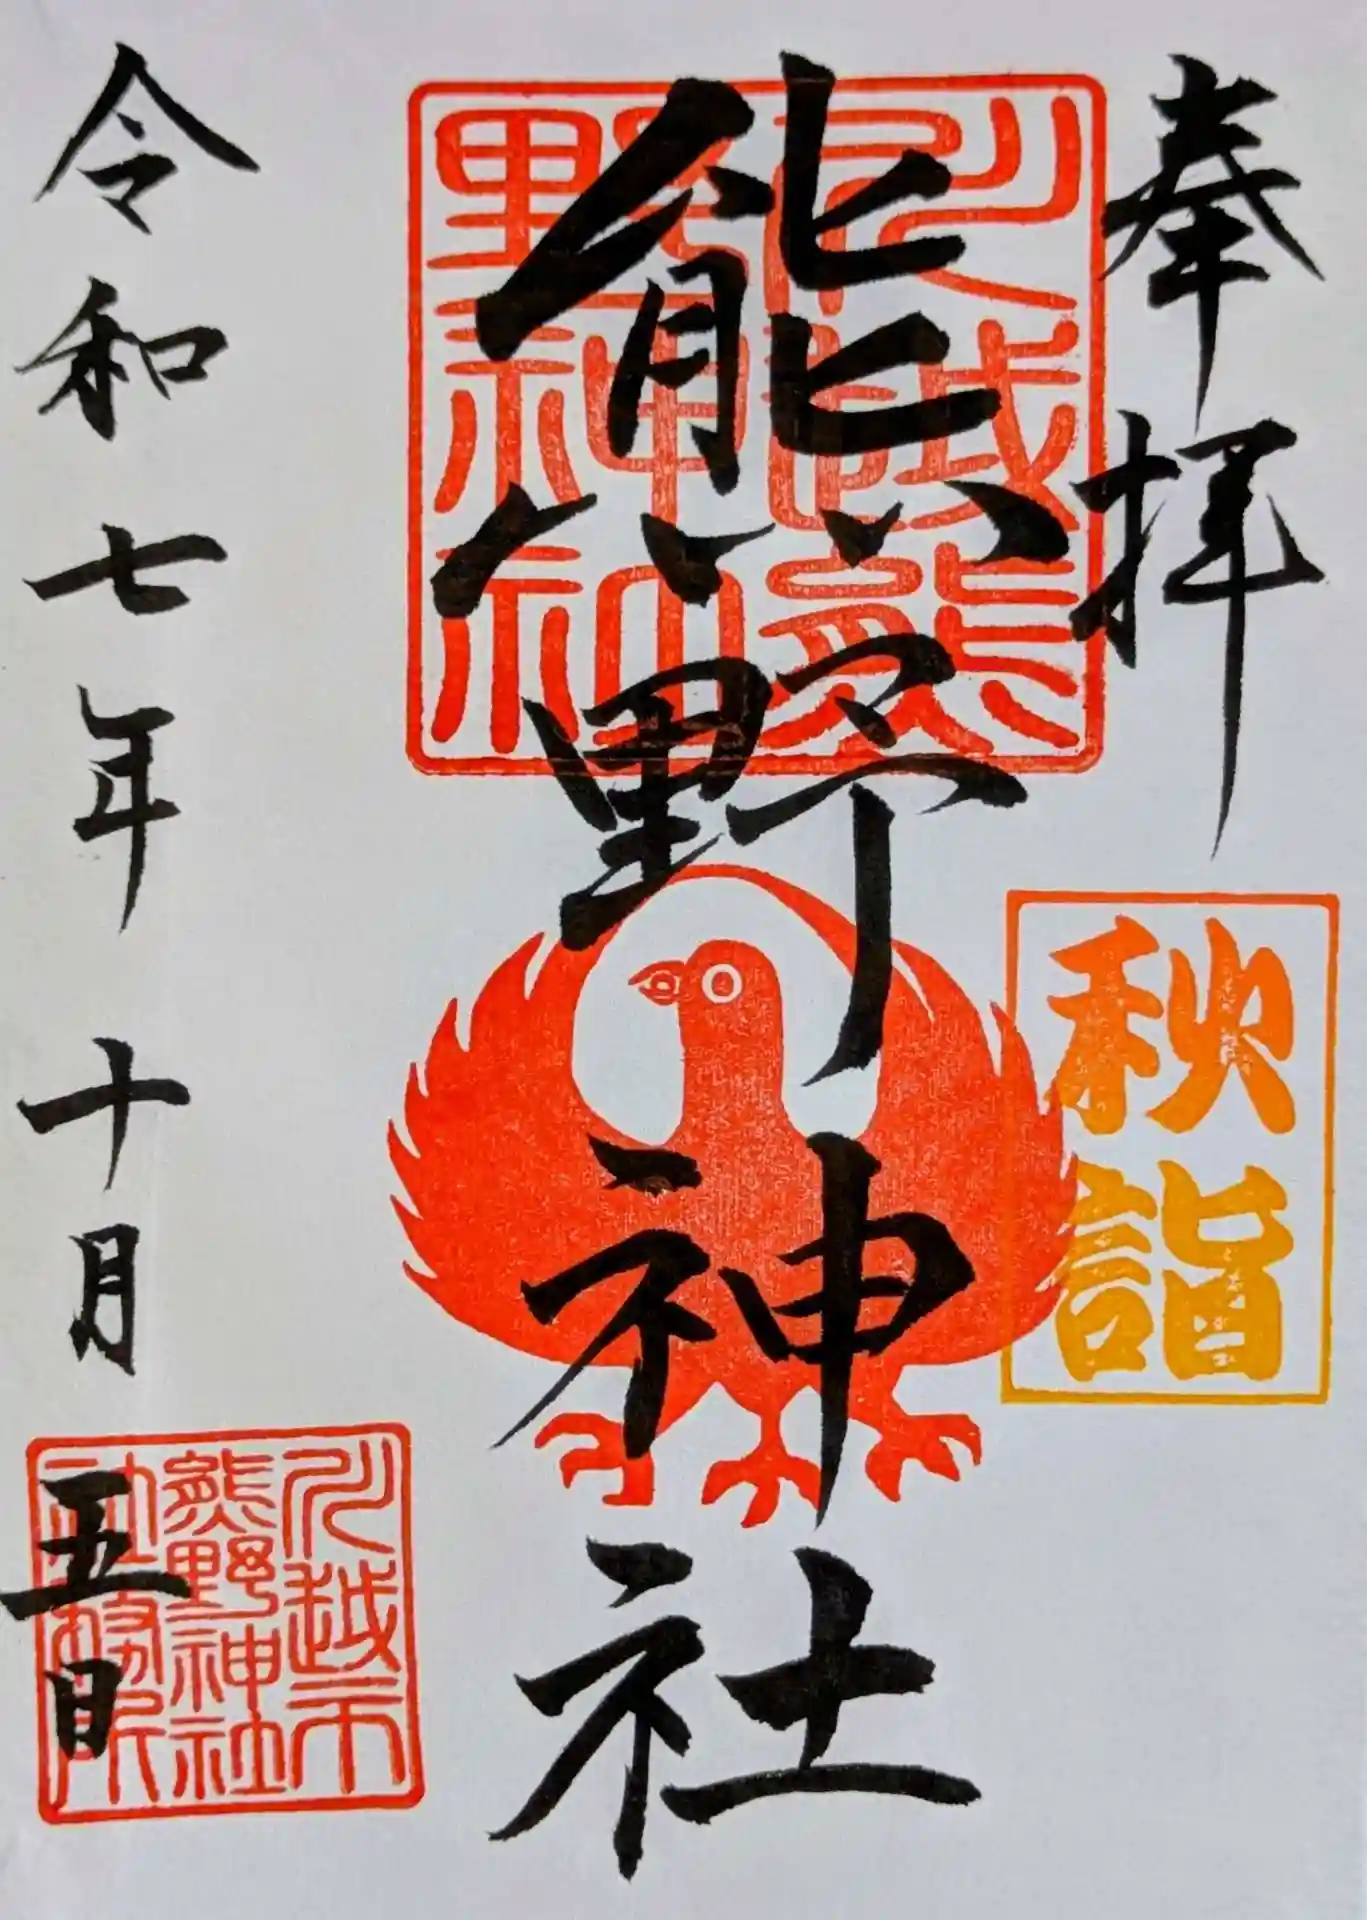 奉拝
秋詣
川越熊
野神社
熊野神社
令和七年十月五日
川越市
熊野神社
社務所